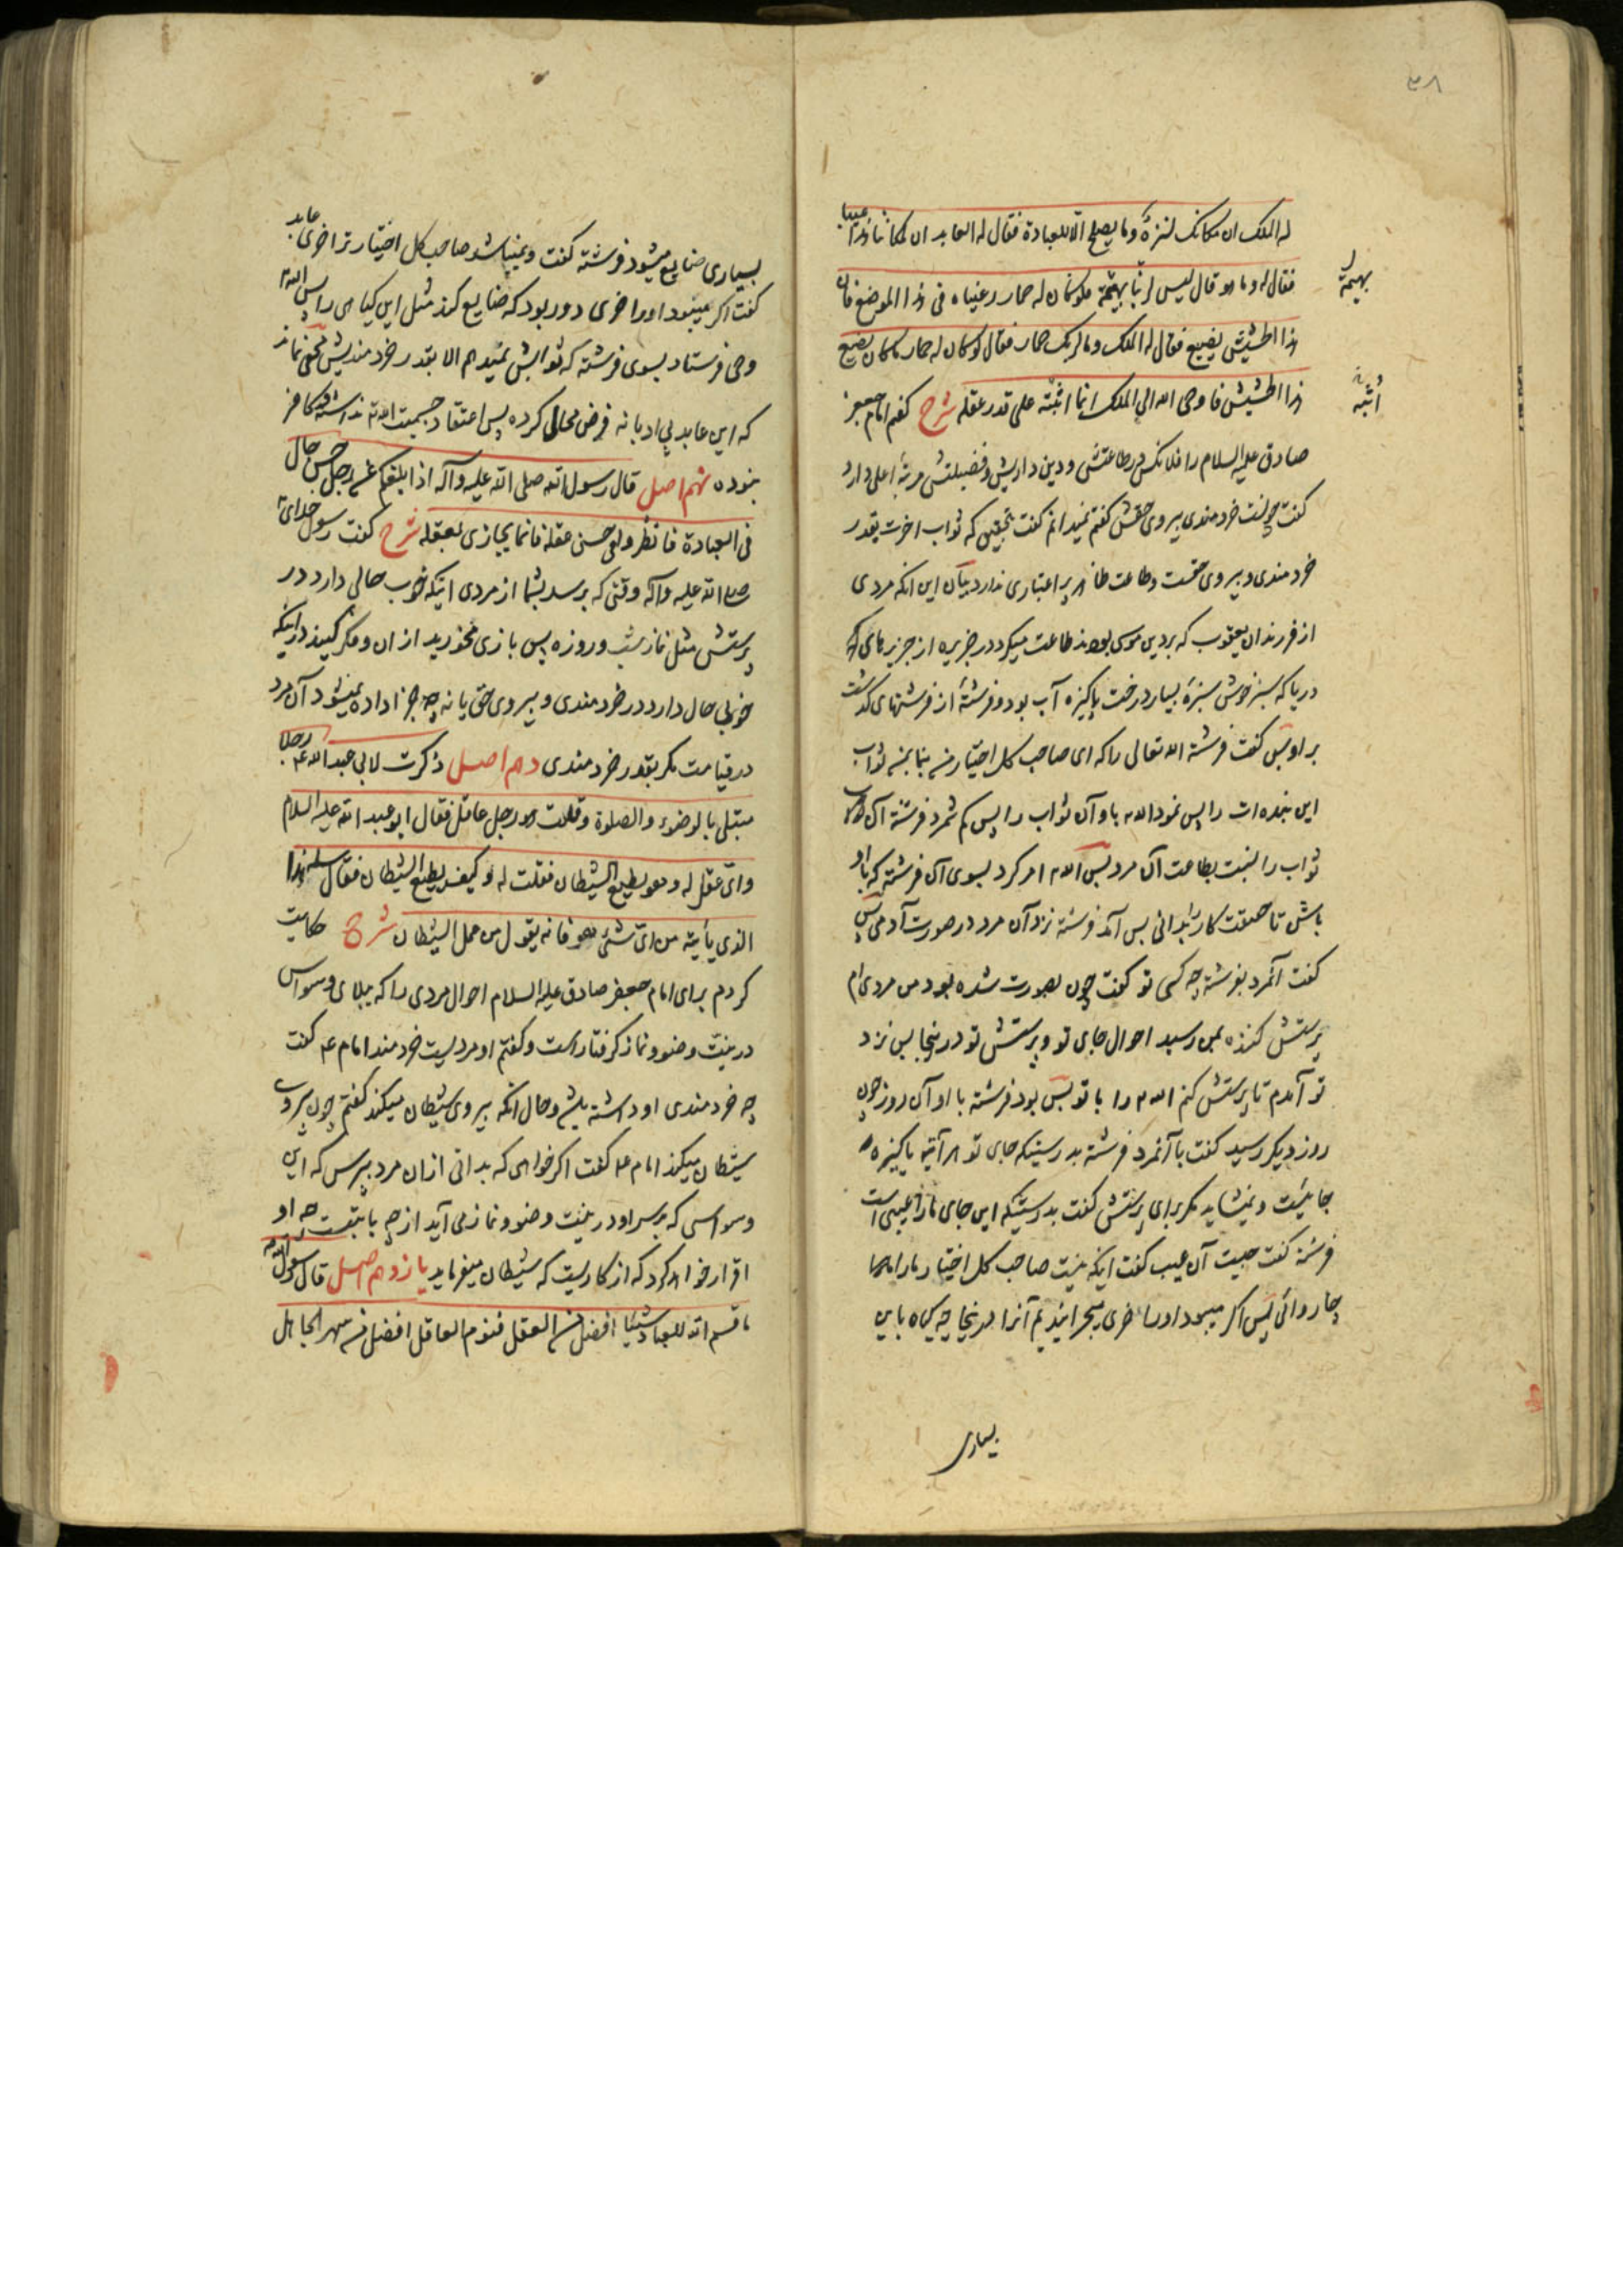 ۳۸
له الملک ان مکانک لنزه وما یصلح الا للعبادة فقال له العابد ان لمکاننا هذا عیبا
فقال له وما هو قال لیس لربنا بهیمة فلو کان له حمار رعیناه فی هذا الموضع فان
بهیمة
هذا الحشیش یضیع فقال له الملک وما لربک حمار فقال لو کان له حمار ما کان یضیع
هذا الحشیش فاوحی الله الی الملک انما اثیبه علی قدر عقله شرح گفتم امام جعفر
اثیبه
صادق علیه السلام را فلانکس در طاعتش و دین داریش و فضیلتش مرتبه اعلی دارد
گفت چونست خردمندی پیروی حقش گفتم نمیدانم گفت بتحقیق که ثواب اخرت بقدر
خردمندی و پیروی حقست و طاعت ظاهر پر اعتباری ندارد بیان این انکه مردی
از فرزندان یعقوب که بر دین موسی بودند طاعت میکرد در جزیره از جزیرهای
دریا که سبز خوش سبزه بسیار درخت پاکیزه آب بود و فرشته از فرشتهای گذشت
بر او پس گفت فرشته الله تعالی را که ای صاحب کل اختیار من بنما بمن ثواب
این بنده ات را پس نمود الله باو آن ثواب را پس کم شمرد فرشته آن
ثواب را نسبت بطاعت آن مرد پس الله امر کرد بسوی آن فرشته که با او
باش تا حقیقت کار را بدانی پس آمد فرشته نزد آن مرد در صورت آدمی پس
گفت آنمرد بفرشته چه کسی تو گفت چون بصورت شده بود من مردی ام
پرستش کننده بمن رسید احوال جای تو و پرستش تو در ینجا پس نزد
تو آمدم تا پرستش کنم الله را با تو پس بود فرشته با او آن روز چون
روز دیگر رسید گفت با آنمرد فرشته بدرستیکه جای تو هر آینه پاکیزه
جائیست و نمیشاید مگر برای پرستش گفت بدرستیکه این جای ما را عیبی است
فرشته گفت چیست آن عیب گفت اینکه نیست صاحب کل اختیار ما را
چاروائی پس اگر میبود او را خری میچرانیدیم آنرا در ینجا چه گیاه باین
بسیاری
بسیاری ضایع میشود فرشته گفت و نمیباشد صاحب کل اختیار ترا خری عابد
گفت اگر میبود او را خری دور بود که ضایع کند مثل این گیاهی را پس الله
وحی فرستاد بسوی فرشته که ثوابش نمیدهم الا بقدر خردمندیش مخفی نماند
که این عابد بی ادبانه فرض محالی کرده پس اعتقاد جسمیت الله نداشته و کافر
نبوده نهم اصل قال رسول الله صلی الله علیه وآله اذا بلغکم عن رجل حسن حال
فی العبادة فانظروا فی حسن عقله فانما یجازی بعقله شرح گفت رسول خدای
صلی الله علیه وآله وقتی که برسد بشما از مردی اینکه خوب حالی دارد در
پرستش مثل نماز شب و روزه پس بازی مخورید از ان و فکر کنید در اینکه
خوبی حال دارد در خردمندی و پیروی حق یا نه چه جزا داده نمیشود آن مرد
در قیامت مگر بقدر خردمندی دهم اصل ذکرت لابی عبد الله ع رجلا
مبتلی بالوضوء والصلوة وقلت هو رجل عاقل فقال ابو عبد الله علیه السلام
وای عقل له وهو یطیع الشیطان فقلت له وکیف یطیع الشیطان فقال سله هذا
الذی یأتیه من ای شئ هو فانه یقول من عمل الشیطان شرح حکایت
کردم برای امام جعفر صادق علیه السلام احوال مردی را که ببلای وسواس
در نیت وضو و نماز گرفتار است و گفتم او مردیست خردمند امام ع گفت
چه خردمندی او داشته باشد و حال آنکه پیروی شیطان میکند گفتم چون پیروی
شیطان میکند امام ع گفت اگر خواهی که بدانی ازان مرد بپرس که این
وسواسی که بر سر او در نیت وضو و نماز می آید از چه بابتست چه او
اقرار خواهد کرد که از کاریست که شیطان میفرماید یازدهم اصل قال رسول الله
ما قسم الله للعباد شیئا افضل من العقل فنوم العاقل افضل من سهر الجاهل